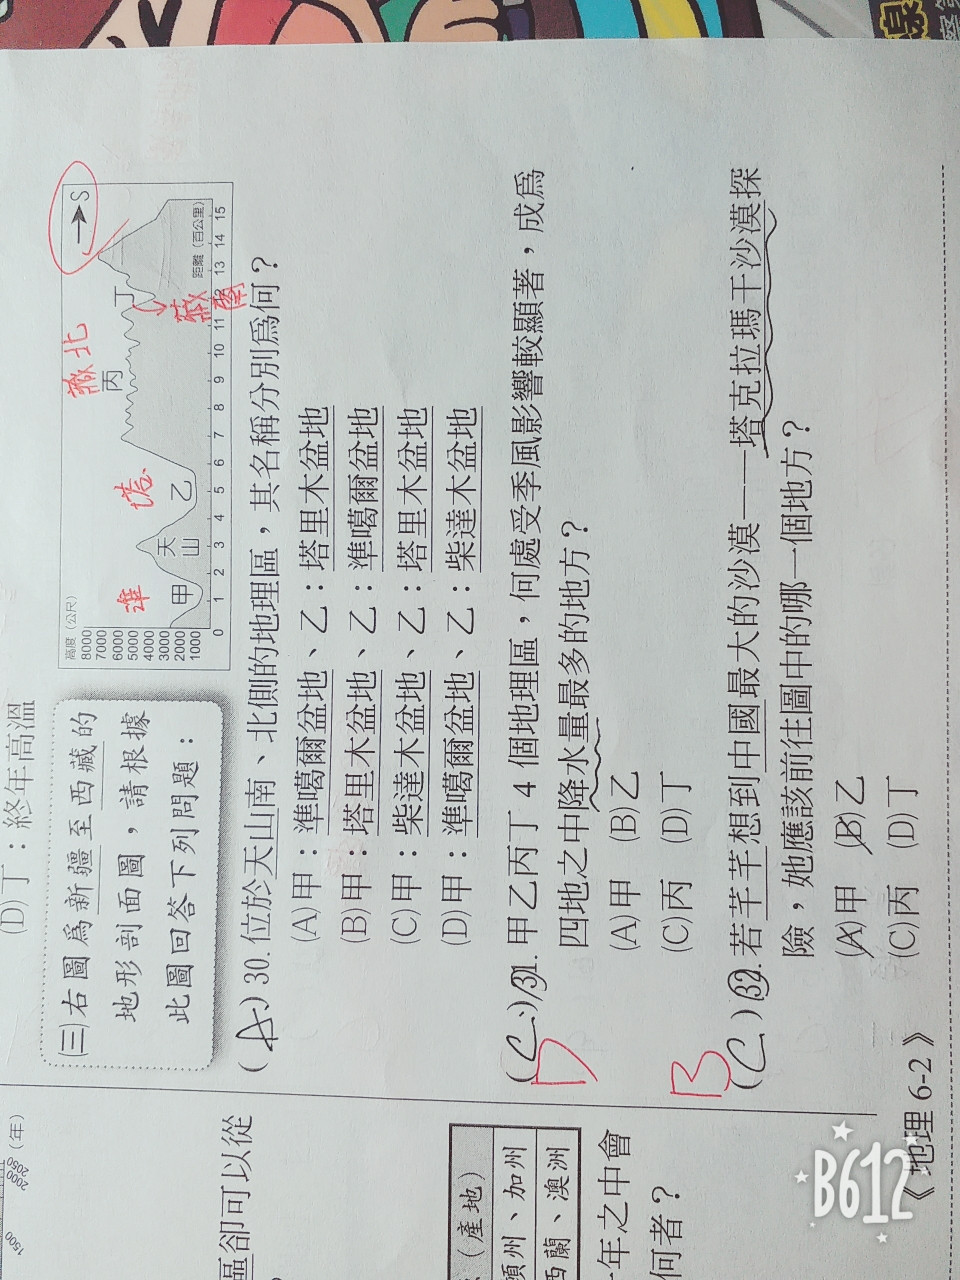 (D)丁：終年高溫
㈢右圖為新疆至西藏的
地形剖面圖，請根據
此圖回答下列問題：
高度（公尺）
8000
7000
6000
5000
4000
3000
2000
1000
0 1 2 3 4 5 6 7 8 9 10 11 12 13 14 15
距離（百公里）
甲
天山
乙
丙
丁
→S
準
塔
藏北
藏南
(A)30.位於天山南、北側的地理區，其名稱分別為何？
(A)甲：準噶爾盆地、乙：塔里木盆地
(B)甲：塔里木盆地、乙：準噶爾盆地
(C)甲：柴達木盆地、乙：塔里木盆地
(D)甲：準噶爾盆地、乙：柴達木盆地
D
(C)31.甲乙丙丁 4 個地理區，何處受季風影響較顯著，成為
四地之中降水量最多的地方？
(A)甲　(B)乙
(C)丙　(D)丁
B
(C)32.若芊芊想到中國最大的沙漠──塔克拉瑪干沙漠探
險，她應該前往圖中的哪一個地方？
(A)甲　(B)乙
(C)丙　(D)丁
《地理 6-2》
1500 2000 2050（年）
區卻可以從
（產地）
、加州
西蘭、澳洲
年之中會
何者？
B612